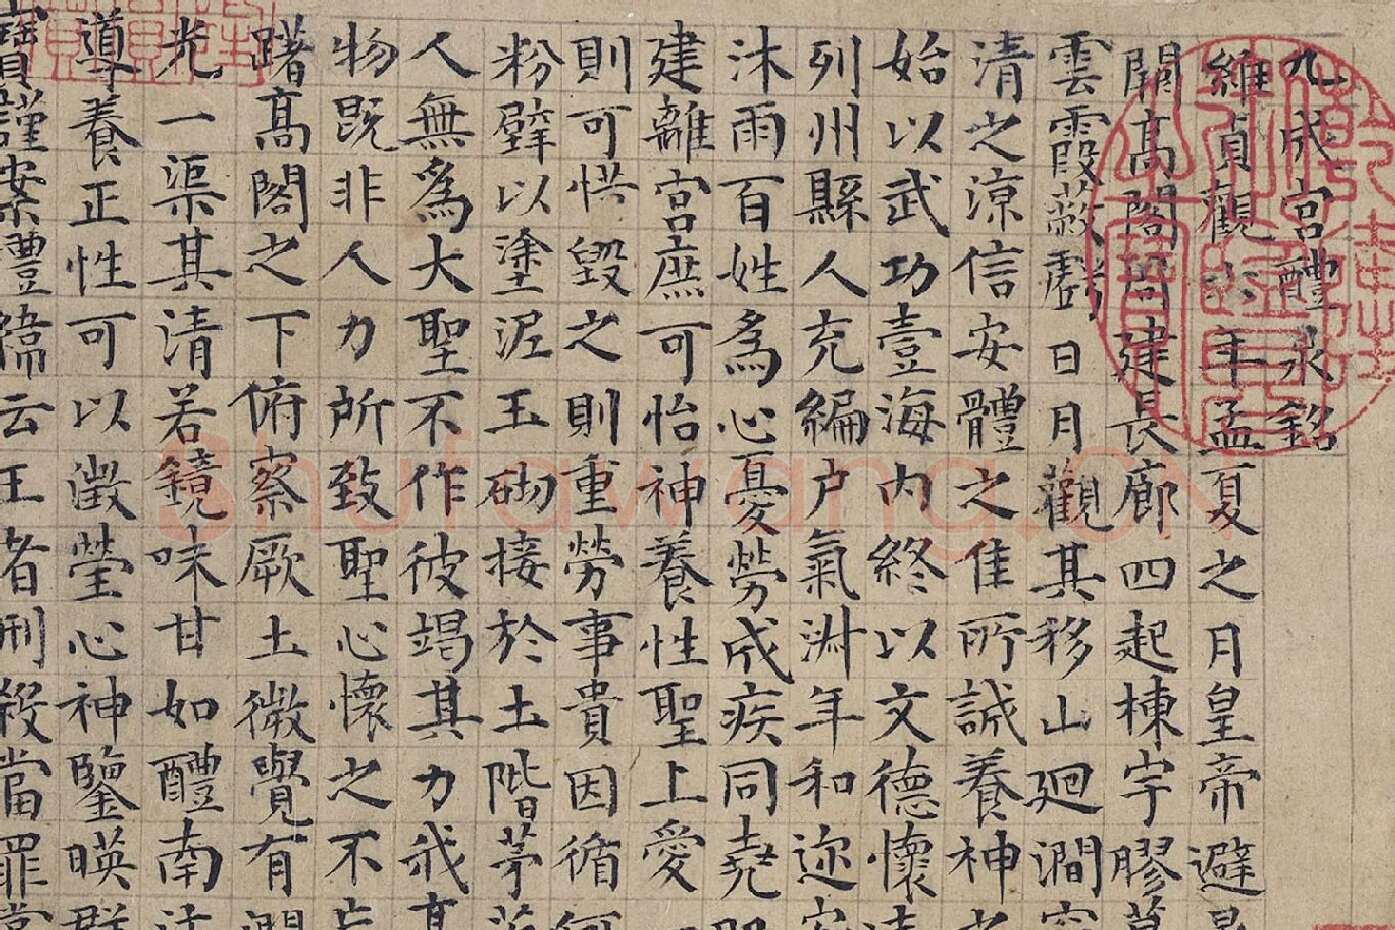 九成宮醴泉銘
維貞觀六年孟夏之月皇帝避
閣高閣周建長廊四起棟宇膠
雲霞蔽虧日月觀其移山廻澗
清之涼信安體之佳所誠養神
始以武功壹海內終以文德懷
列州縣人充編戶氣淋年和迩
沐雨百姓為心憂勞成疾同堯
建離宮庶可怡神養性聖上愛
則可惜毀之則重勞事貴因循
粉壁以塗泥玉砌接於土階茅
人無為大聖不作彼竭其力我
物既非人力所致聖心懷之不
躇高閣之下俯察厥土微覺有
光一渠其清若鏡味甘如醴南
導養正性可以澂瑩心神鑒暎群
寶謹案禮緯云王者刑殺當罪
Shufawang.CN